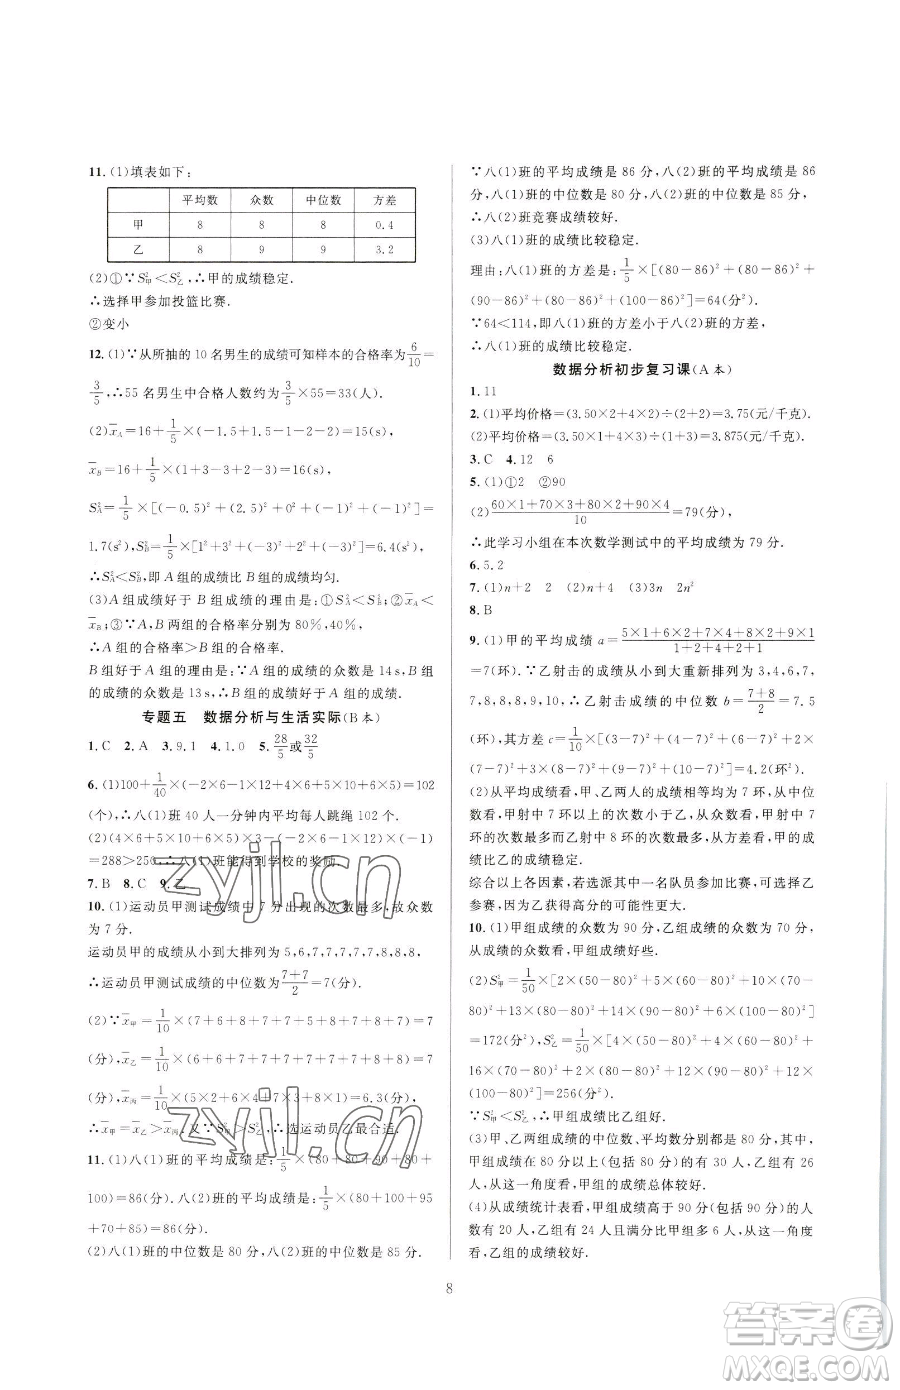 11. (1)填表如下:
平均数 众数 中位数 方差
甲 8 8 8 0.4
乙 8 9 9 3.2
(2)①∵S²甲<S²乙,∴甲的成绩稳定.
∴选择甲参加投篮比赛.
②变小
12. (1)∵从所抽的10名男生的成绩可知样本的合格率为6/10=
3/5,∴55名男生中合格人数约为55×3/5=33(人).
(2)x̄A=16+1/5×(-1.5+1.5-1-1+2)=16(s),
x̄B=16+1/5×(1+3-3+2-3)=16(s),
S²A=1/5×[(-0.5)²+(1.5)²+0²+(-1)²+(-1)²]=
1.7(s²),S²B=1/5×[1²+3²+(-3)²+2²+(-3)²]=6.4(s²),
∴S²A<S²B,即A组的成绩比B组的成绩均匀.
(3)A组成绩好于B组成绩的理由是:①S²A<S²B;②x̄A>
x̄B;③∵A,B两组的合格率分别为80%,40%,
∴A组的合格率>B组的合格率.
B组好于A组的理由是:∵A组的成绩的众数是14 s,B组
的成绩的众数是13 s,∴B组的成绩好于A组的成绩.
专题五 数据分析与生活实际(B本)
1.C 2.A 3.9.1 4.1.0 5.28/5或32/5
6. (1)100+1/40×(-2×6-1×12+4×6+5×10+6×5)=102
(个),∴八(1)班一分钟内平均每人跳绳102个.
(2)(4×6+5×10+6×5)×3-(-2×6-1×12)×(-1)
=288>250,∴八(1)班能得到学校的奖励.
7.B 8.C 9.乙
10. (1)运动员甲测试成绩中7分出现的次数最多,故众数
为7分.
运动员甲的成绩从小到大排列为5,6,7,7,7,7,7,8,8,8,
∴运动员甲测试成绩的中位数为7+7/2=7(分).
(2)∵x̄甲=1/10×(7+6+8+7+7+5+8+7+8+7)=7
(分),x̄乙=1/10×(6+6+7+7+7+7+8+7+7+8)=7
(分),x̄丙=1/10×(5×2+6×4+7×3+8×1)=6.3(分),
∴x̄甲=x̄乙>x̄丙,∵S²甲>S²乙,∴选运动员乙最合适.
11. (1)八(1)班的平均成绩是:1/5×(80+80+90+80+
100)=86(分).八(2)班的平均成绩是:1/5×(80+100+95
+70+85)=86(分).
(2)八(1)班的中位数是80分,八(2)班的中位数是85分.
∵八(1)班的平均成绩是86分,八(2)班的平均成绩是86
分,八(1)班的中位数是80分,八(2)班的中位数是85分,
∴八(2)班竞赛成绩较好.
(3)八(1)班的成绩比较稳定.
理由:八(1)班的方差是:1/5×[(80-86)²+(80-86)²+
(90-86)²+(80-86)²+(100-86)²]=64(分²),
∵64<114,即八(1)班的方差小于八(2)班的方差,
∴八(1)班的成绩比较稳定.
数据分析初步复习课(A本)
1.11
2. (1)平均价格=(3.50×2+4×2)÷(2+2)=3.75(元/千克).
(2)平均价格=(3.50×1+4×3)÷(1+3)=3.875(元/千克).
3.C 4.12 6
5. (1)①2 ②90
(2)60×1+70×3+80×2+90×4/10=79(分),
∴此学习小组在本次数学测试中的平均成绩为79分.
6.5.2
7. (1)n+2 2 (2)n+5 (3)3n 2n²
8.B
9. (1)甲的平均成绩a=5×1+6×2+7×4+8×2+9×1/1+2+4+2+1
=7(环).∵乙射击的成绩从小到大重新排列为3,4,6,7,
7,8,8,8,9,10,∴乙射击成绩的中位数b=7+8/2=7.5
(环),其方差c=1/10×[(3-7)²+(4-7)²+(6-7)²+2×
(7-7)²+3×(8-7)²+(9-7)²+(10-7)²]=4.2(环²).
(2)从平均成绩看,甲、乙两人的成绩相等均为7环,从中位
数看,甲射中7环以上的次数小于乙,从众数看,甲射中7
环的次数最多而乙射中8环的次数最多,从方差看,甲的成
绩比乙的成绩稳定.
综合以上各因素,若选派其中一名队员参加比赛,可选择乙
参赛,因为乙获得高分的可能性更大.
10. (1)甲组成绩的众数为90分,乙组成绩的众数为70分,
从成绩的众数看,甲组成绩好些.
(2)S²甲=1/50×[2×(50-80)²+5×(60-80)²+10×(70-
80)²+13×(80-80)²+14×(90-80)²+6×(100-80)²]
=172(分²),S²乙=1/50×[4×(50-80)²+4×(60-80)²+
16×(70-80)²+2×(80-80)²+12×(90-80)²+12×
(100-80)²]=256(分²).
∵S²甲<S²乙,∴甲组成绩比乙组好.
(3)甲、乙两组成绩的中位数、平均数分别都是80分,甲组
成绩在80分以上(包括80分)的有30人,乙组有26
人,从这一角度看,甲组的成绩总体较好.
(4)从成绩统计表看,甲组成绩高于90分(包括90分)的人
数有20人,乙组有24人且满分比甲组多6人,从这一角度
看,乙组的成绩较好.
8
zyjl.cn
zyjl.cn
答案圈
MXQE.COM